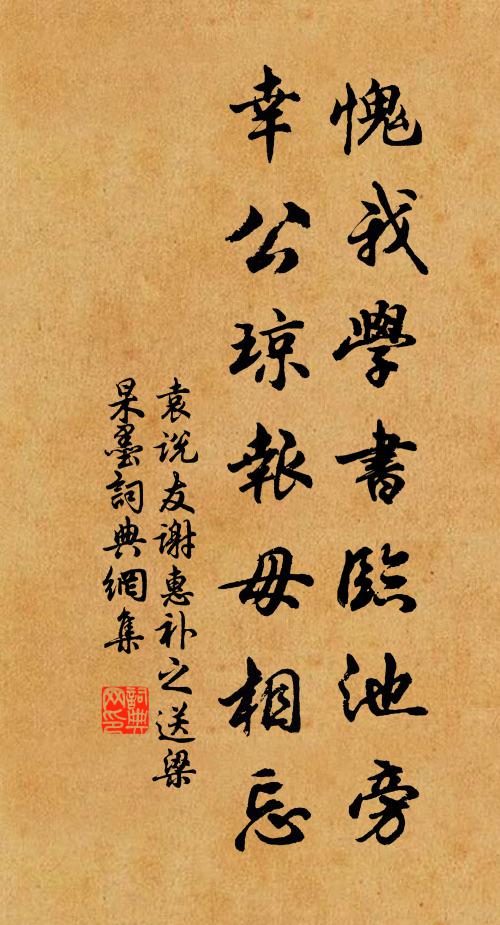 愧我學書臨池旁
幸公琼報毋相忘
袁说友謝惠补之送梁
杲墨詞典網集
詞典网印